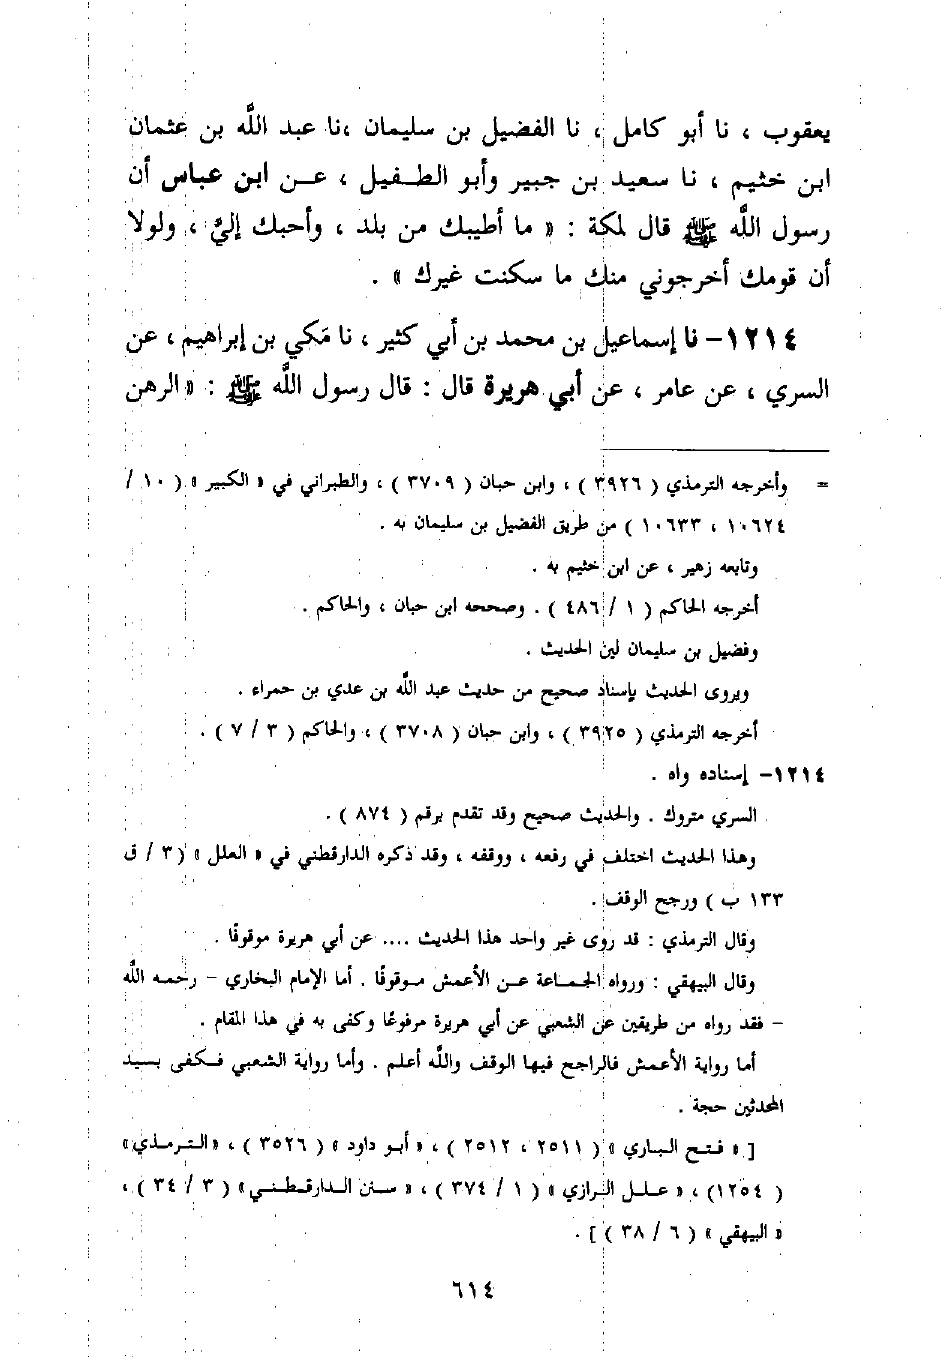 يعقوب ، نا أبو كامل ، نا الفضيل بن سليمان ،نا عبد اللَّه بن عثمان
ابن خثيم ، نا سعيد بن جبير وأبو الطـفيل ، عـن ابن عباس أن
رسول اللَّه ﷺ قال لمكة : « ما أطيبك من بلد ، وأحبك إليَّ ، ولولا
أن قومك أخرجوني منك ما سكنت غيرك » .
١٢١٤- نا إسماعيل بن محمد بن أبي كثير ، نا مَكي بن إبراهيم ، عن
السري ، عن عامر ، عن أبي هريرة قال : قال رسول اللَّه ﷺ : « الرهن
= وأخرجه الترمذي ( ٣٩٢٦ ) ، وابن حبان ( ٣٧٠٩ ) ، والطبراني في « الكبير » ( ١٠ /
١٠٦٢٤ ، ١٠٦٣٣ ) من طريق الفضيل بن سليمان به .
وتابعه زهير ، عن ابن خثيم به .
أخرجه الحاكم ( ١ / ٤٨٦ ) . وصححه ابن حبان ، والحاكم .
وفضيل بن سليمان لين الحديث .
ويروى الحديث بإسناد صحيح من حديث عبد اللَّه بن عدي بن حمراء .
أخرجه الترمذي ( ٣٩٢٥ ) ، وابن حبان ( ٣٧٠٨ ) ، والحاكم ( ٣ / ٧ ) .
١٢١٤- إسناده واه .
السري متروك . والحديث صحيح وقد تقدم برقم ( ٨٧٤ ) .
وهذا الحديث اختلف في رفعه ، ووقفه ، وقد ذكره الدارقطني في « العلل » ( ٣ / ق
١٣٣ ب ) ورجح الوقف .
وقال الترمذي : قد روى غير واحد هذا الحديث .... عن أبي هريرة موقوفًا .
وقال البيهقي : ورواه الجـماعة عـن الأعمش مـوقوفًا . أما الإمام البخاري - رحمـه اللَّه
- فقد رواه من طريقين عن الشعبي عن أبي هريرة مرفوعًا وكفى به في هذا المقام .
أما رواية الأعمش فالراجح فيها الوقف واللَّه أعلم . وأما رواية الشعبي فـكفى بسيد
المحدثين حجة .
[ « فـتـح البـاري » ( ٢٥١١ ، ٢٥١٢ ) ، « أبـو داود » ( ٣٥٢٦ ) ، «التـرمـذي»
( ١٢٥٤) ، « عـلـل الرازي » ( ١ / ٣٧٤ ) ، « سـنن الـدارقـطنـي» ( ٣ / ٣٤ ) ،
« البيهقي » ( ٦ / ٣٨ ) ] .
٦١٤